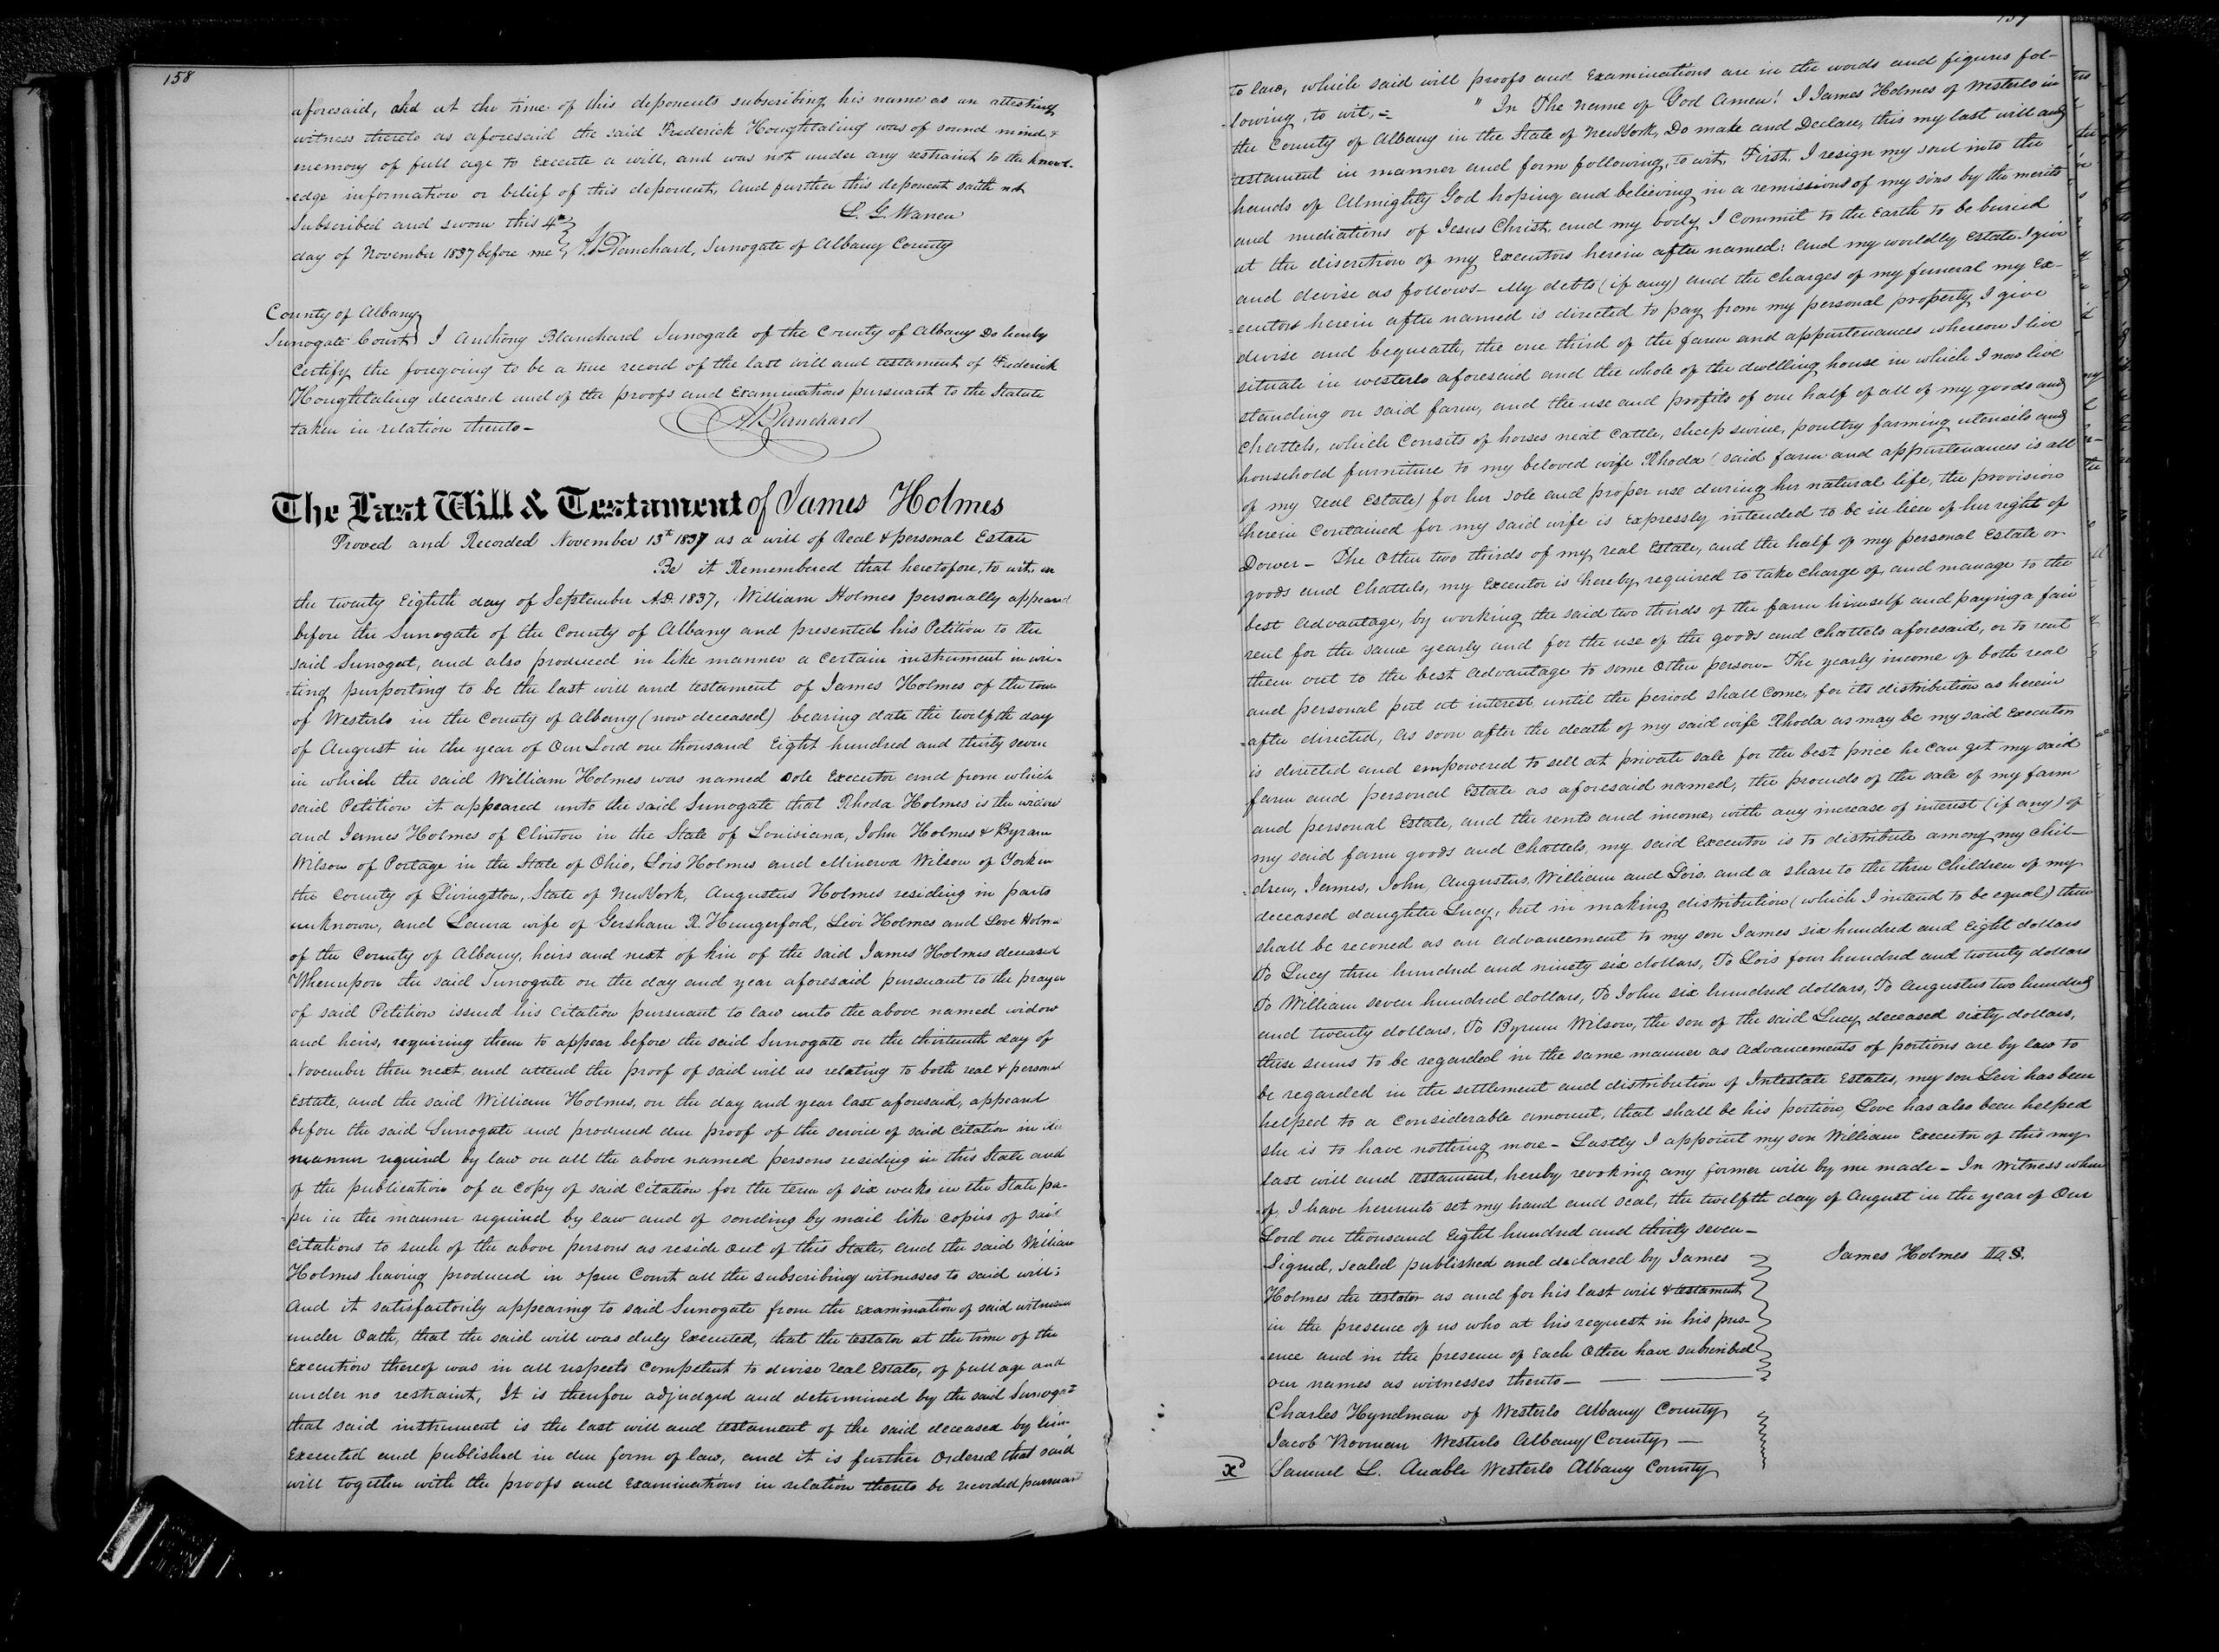 158
aforesaid, and at the time of this deponents subscribing his name as an attesting
witness thereto as aforesaid the said Frederick Houghtaling was of sound mind &
memory of full age to Execute a will, and was not under any restraint to the knowl-
-edge information or belief of this deponent, and further this deponent saith not
Subscribed and sworn this 4th } L. G. Warren
day of November 1837 before me } A. Blanchard, Surrogate of Albany County
County of Albany
Surrogate Court } I Anthony Blanchard Surrogate of the County of Albany Do hereby
Certify the foregoing to be a true record of the last will and testament of Frederick
Houghtaling deceased and of the proofs and Examinations pursuant to the Statute
taken in relation thereto - A Blanchard
The Last Will & Testament of James Holmes
Proved and Recorded November 13th 1837 as a will of Real & personal Estate
Be it Remembered that heretofore, to wit, on
the twenty Eighth day of September A.D. 1837, William Holmes personally appeared
before the Surrogate of the County of Albany and presented his Petition to the
said Surrogate, and also produced in like manner a certain instrument in wri-
-ting purporting to be the last will and testament of James Holmes of the town
of Westerlo in the County of Albany (now deceased) bearing date the twelfth day
of August in the year of Our Lord one thousand Eight hundred and thirty seven
in which the said William Holmes was named sole Executor and from which
said Petition it appeared unto the said Surrogate that Rhoda Holmes is the widow
and James Holmes of Clinton in the State of Louisiana, John Holmes & Byram
Wilson of Portage in the State of Ohio, Lois Holmes and Minerva Wilson of York in
the County of Livingston, State of New York, Augustus Holmes residing in parts
unknown, and Laura wife of Gersham R. Hungerford, Levi Holmes and Love Holmes
of the County of Albany, heirs and next of kin of the said James Holmes deceased
Whereupon the said Surrogate on the day and year aforesaid pursuant to the prayer
of said Petition issued his citation pursuant to law unto the above named widow
and heirs, requiring them to appear before the said Surrogate on the thirteenth day of
November then next, and attend the proof of said will as relating to both real & personal
Estate, and the said William Holmes, on the day and year last aforesaid, appeared
before the said Surrogate and produced due proof of the service of said citation in the
manner required by law on all the above named persons residing in this State and
of the publication of a copy of said citation for the term of six weeks in the State pa-
-per in the manner required by law and of sending by mail like copies of said
Citations to such of the above persons as reside out of this State, and the said William
Holmes having produced in open Court all the subscribing witnesses to said will;
And it satisfactorily appearing to said Surrogate from the Examination of said witnesses
under Oath, that the said will was duly Executed, that the testator at the time of the
Execution thereof was in all respects Competent to devise real Estate, of full age and
under no restraint, It is therefore adjudged and determined by the said Surrogate
that said instrument is the last will and testament of the said deceased by him
Executed and published in due form of law, and it is further Ordered that said
will together with the proofs and Examinations in relation thereto be recorded pursuant
to law, which said will proofs and Examinations are in the words and figures fol-
-lowing, to wit, = "In The Name of God Amen! I James Holmes of Westerlo in
the County of Albany in the State of New York, Do make and Declare, this my last will and
testament in manner and form following, to wit, First, I resign my soul into the
hands of Almighty God hoping and believing in a remissions of my sins by the merits
and mediations of Jesus Christ, and my body I commit to the Earth to be buried
at the discretion of my Executors herein after named: and my worldly Estate I give
and devise as follows - My debts (if any) and the charges of my funeral my Ex-
=ecutor herein after named is directed to pay from my personal property, I give
devise and bequeath, the one third of the farm and appurtenances whereon I live
situate in westerlo aforesaid and the whole of the dwelling house in which I now live
standing on said farm, and the use and profits of one half of all of my goods and
Chattels, which Consits of horses neat Cattle, sheep swine, poultry farming utensils and
household furniture to my beloved wife Rhoda (said farm and appurtenances is all
of my real Estate) for her sole and proper use during her natural life, the provision
herein Contained for my said wife is Expressly intended to be in lieu of her right of
Dower - The Other two thirds of my real Estate, and the half of my personal Estate or
goods and Chattels, my Executor is hereby required to take charge of and manage to the
best Advantage, by working the said two thirds of the farm himself and paying a fair
rent for the same yearly and for the use of the goods and chattels aforesaid, or to rent
them out to the best Advantage to some Other person - The yearly income of both real
and personal put at interest until the period shall Come, for its distribution as herein
-after directed, As soon after the death of my said wife Rhoda as may be my said Executor
is directed and empowered to sell at private sale for the best price he can get my said
farm and personal Estate as aforesaid named, the proceeds of the sale of my farm
and personal Estate, and the rents and income, with any increase of interest (if any) of
my said farm goods and Chattels, my said Executor is to distribute among my chil-
-dren, James, John, Augustus, William and Lois, and a share to the three Children of my
deceased daughter Lucy, but in making distribution (which I intend to be equal) there
shall be reconed as an advancement to my son James six hundred and Eight dollars
To Lucy three hundred and ninety six dollars, To Lois four hundred and twenty dollars
To William seven hundred dollars, To John six hundred dollars, To Augustus two hundred
and twenty dollars, To Byrum Wilson, the son of the said Lucy deceased sixty dollars,
these sums to be regarded in the same manner as Advancements of portions are by law to
be regarded in the settlement and distribution of Intestate Estates, my son Levi has been
helped to a Considerable amount, that shall be his portion, Love has also been helped
she is to have nothing more - Lastly I appoint my son William Executor of this my
last will and testament, hereby revoking any former will by me made - In Witness where
-of, I have hereunto set my hand and seal, the twelfth day of August in the year of Our
Lord one thousand Eight hundred and thirty seven -
Signed, sealed published and declared by James } James Holmes
Holmes the testator as and for his last will & testament
in the presence of us who at his request in his pres-
-ence and in the presence of Each Other have subscribed
our names as witnesses thereto -
Charles Hyndman of Westerlo Albany County
Jacob Vrooman Westerlo Albany County -
Samuel L. Anable Westerlo Albany County